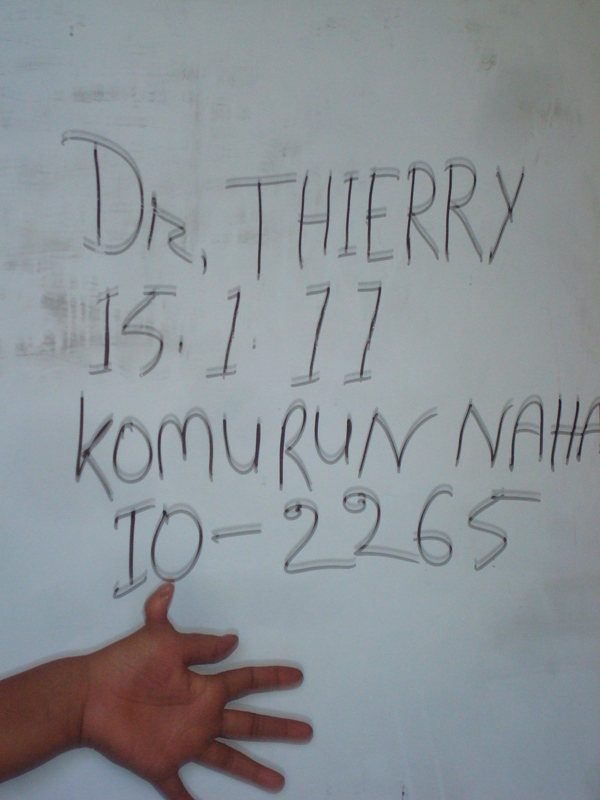 Dr, THIERRY
15.1.11
KOMURUN NAHA
IO-2265